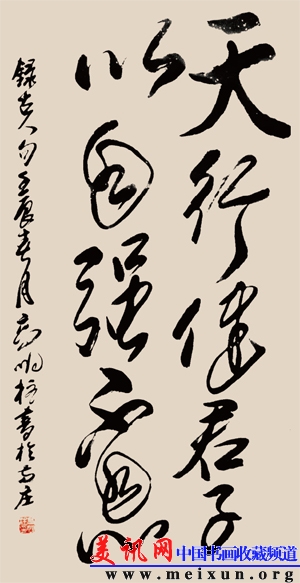 天行健君子
以自强不息
录古人句壬辰春月
书於
美讯网 中国书画收藏频道
www.meixun.org